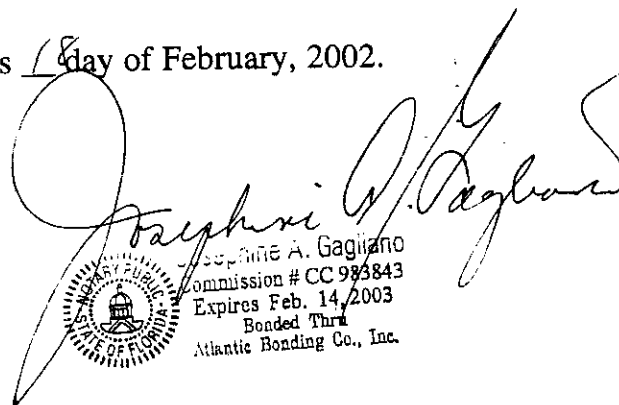 s 18 day of February, 2002.
Josephine A. Gagliano
Josephine A. Gagliano
Commission # CC 983843
Expires Feb. 14, 2003
Bonded Thru
Atlantic Bonding Co., Inc.
NOTARY PUBLIC
STATE OF FLORIDA